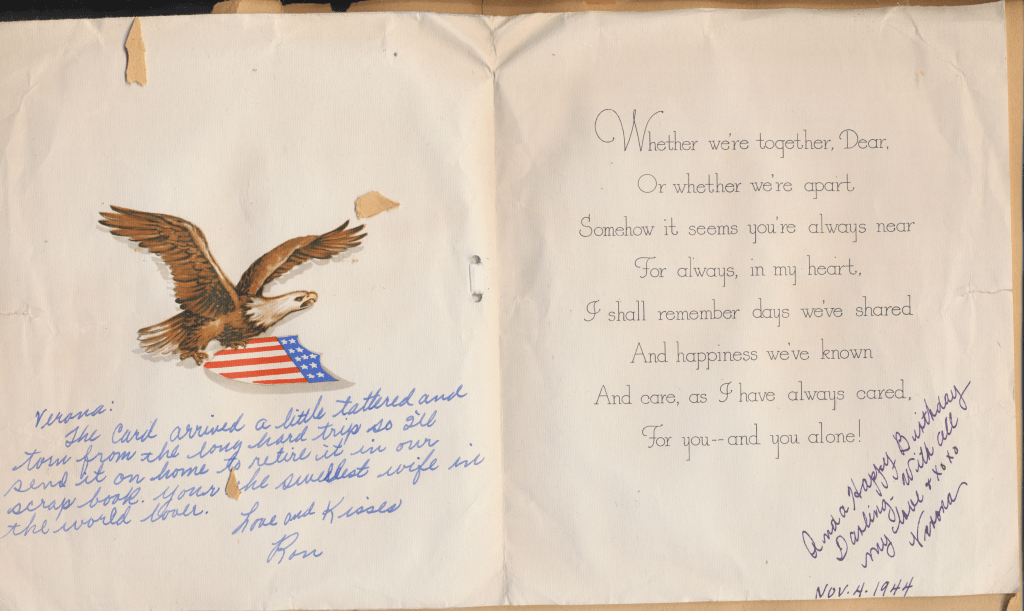 Verona:
The Card arrived a little tattered and
torn from the long hard trip so I'll
send it on home to retire it in our
scrap book. Your the swellest wife in
the world lover.
Love and Kisses
Ron
Whether we're together, Dear,
Or whether we're apart
Somehow it seems you're always near
For always, in my heart,
I shall remember days we've shared
And happiness we've known
And care, as I have always cared,
For you--and you alone!
And a Happy Birthday
Darling- With all
my love + xoxo
Verona
NOV. 4. 1944